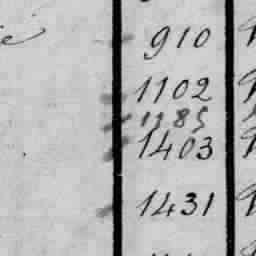 910
1102
1385
1403
1431